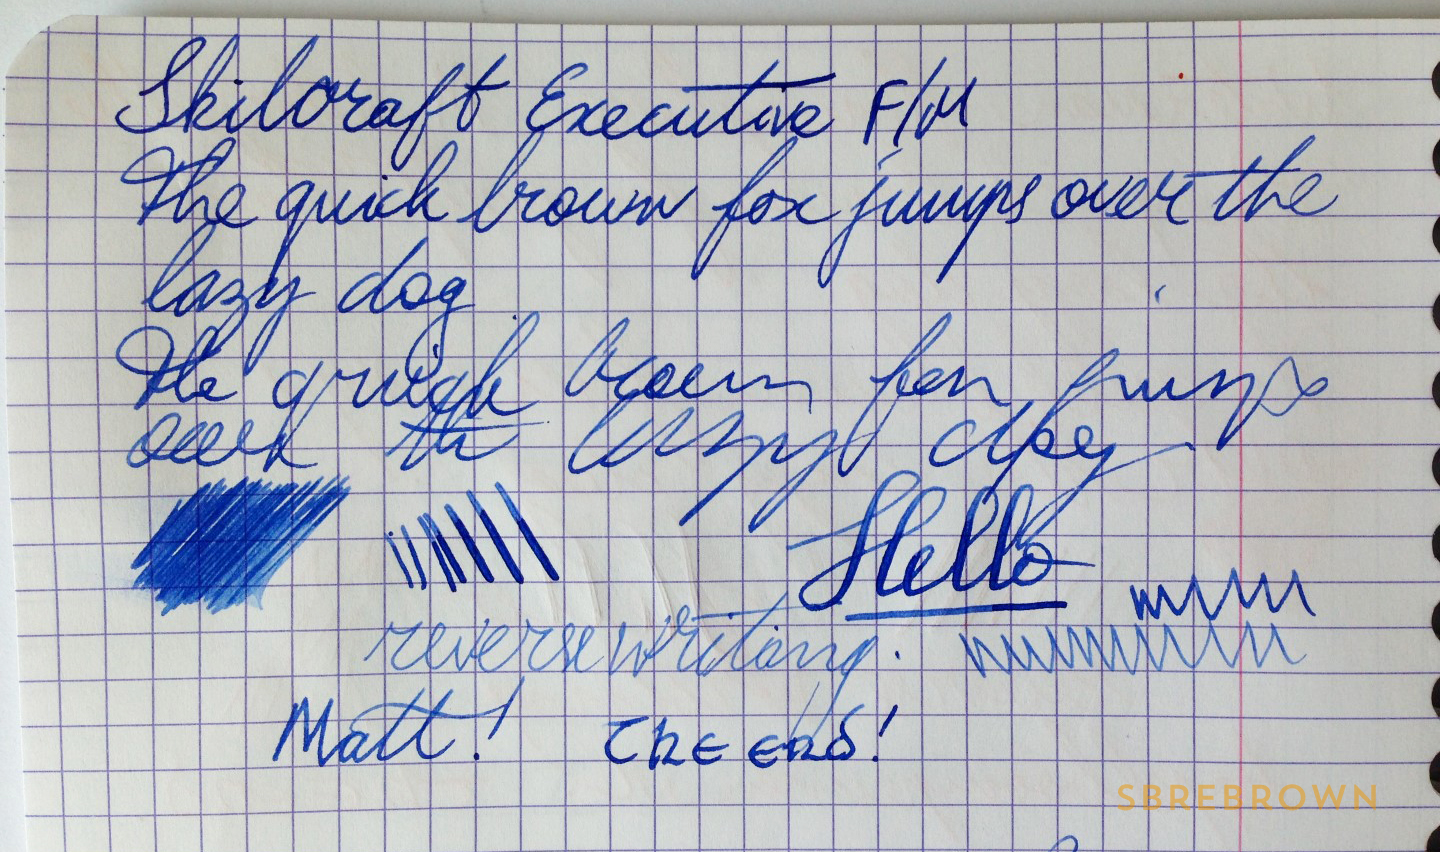 Skilcraft Executive F/M
The quick brown fox jumps over the
lazy dog
The quick brown fox jumps
over the lazy dog
Hello
reverse writing.
Matt! The end!
SBREBROWN